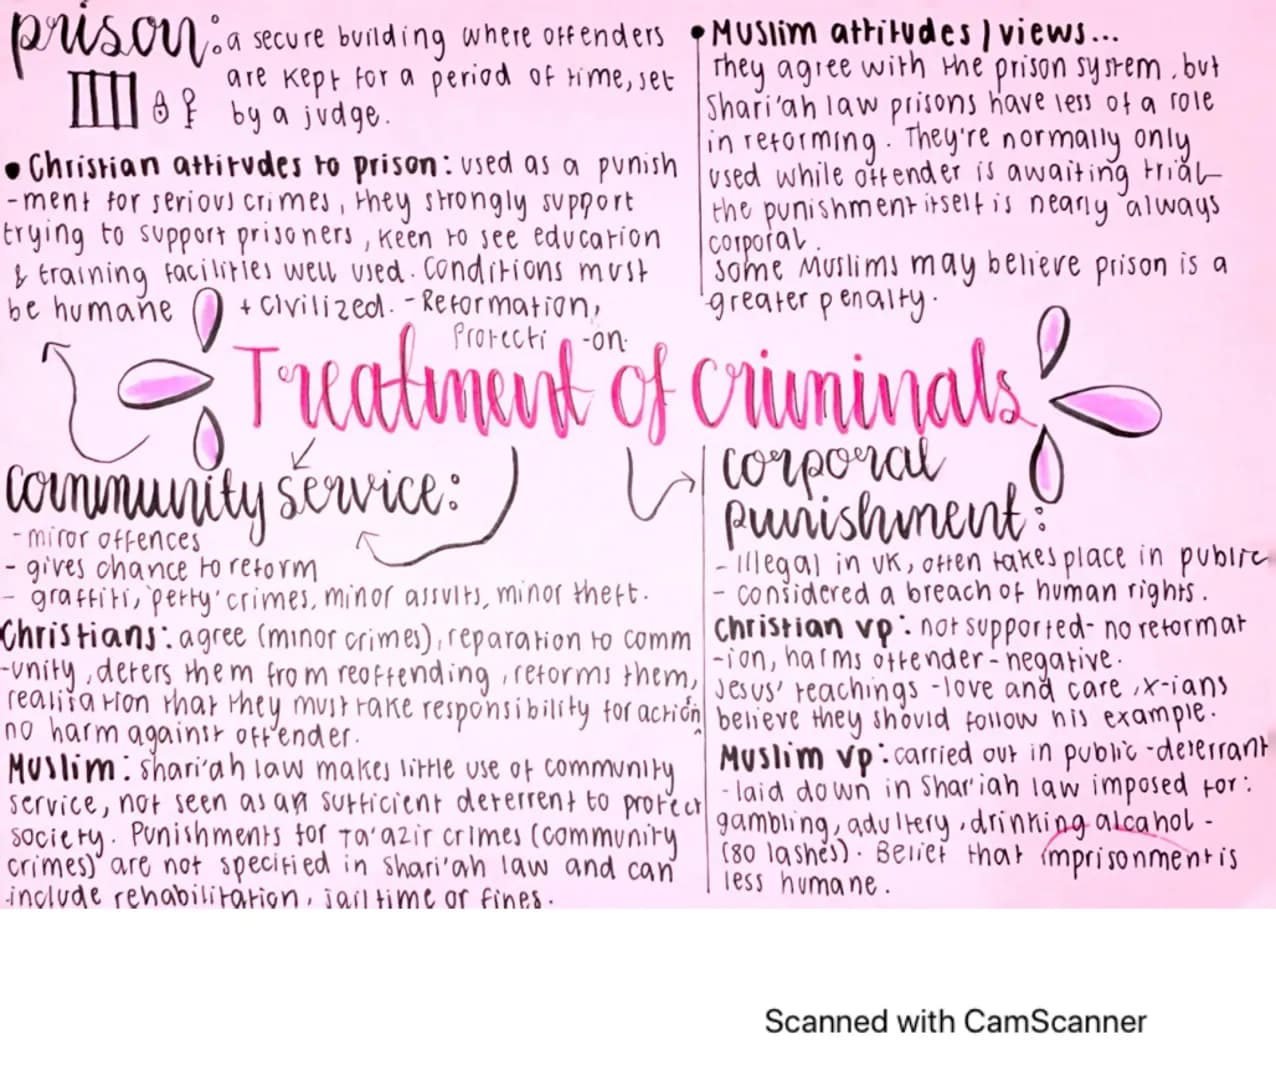 prison: a secure building where offenders
are kept for a period of time, set
by a judge.
• Christian attitudes to prison: used as a punish
-ment for serious crimes, they strongly support
trying to support prisoners, keen to see education
& training facilities well used. Conditions must
be humane + civilized. - Reformation,
Protecti -on.
• Muslim attitudes / views...
They agree with the prison system, but
Shari'ah law prisons have less of a role
in reforming. They're normally only
used while offender is awaiting trial-
the punishment itself is nearly always
corporal.
some Muslims may believe prison is a
greater penalty.
Treatment of criminals
community service:
- minor offences
- gives chance to reform
- graffiti, 'petty' crimes, minor assults, minor theft.
Christians: agree (minor crimes), reparation to comm
-unity, deters them from reoffending, reforms them,
realisation that they must take responsibility for action
no harm against offender.
Muslim: shari'ah law makes little use of community
service, not seen as an sufficient deterrent to protect
society. Punishments for Ta'azir crimes (community
crimes) are not specified in Shari'ah law and can
include rehabilitation, jail time or fines.
corporal
punishment:
- illegal in UK, often takes place in public
- considered a breach of human rights.
Christian vp: not supported- no reformat
-ion, harms offender - negative.
Jesus' teachings - love and care, x-ians
believe they should follow his example.
Muslim vp: carried out in public - deterrant
- laid down in Shar'iah law imposed for:
gambling, adultery, drinking alcahol -
(80 lashes). Belief that imprisonment is
less humane.
Scanned with CamScanner